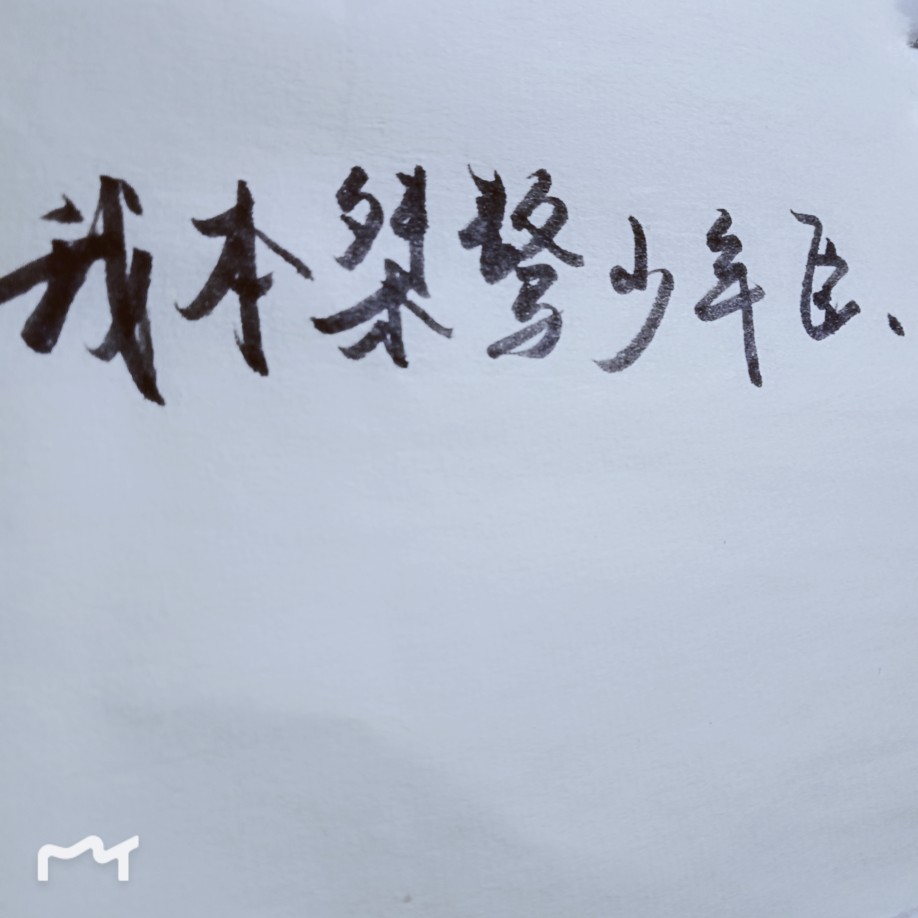 我本桀骜少年臣、